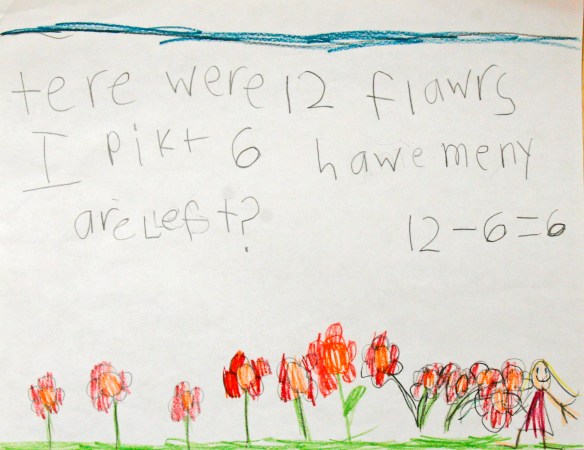 tere were 12 flawrs
I pikt 6 hawe meny
are Left?
12-6=6